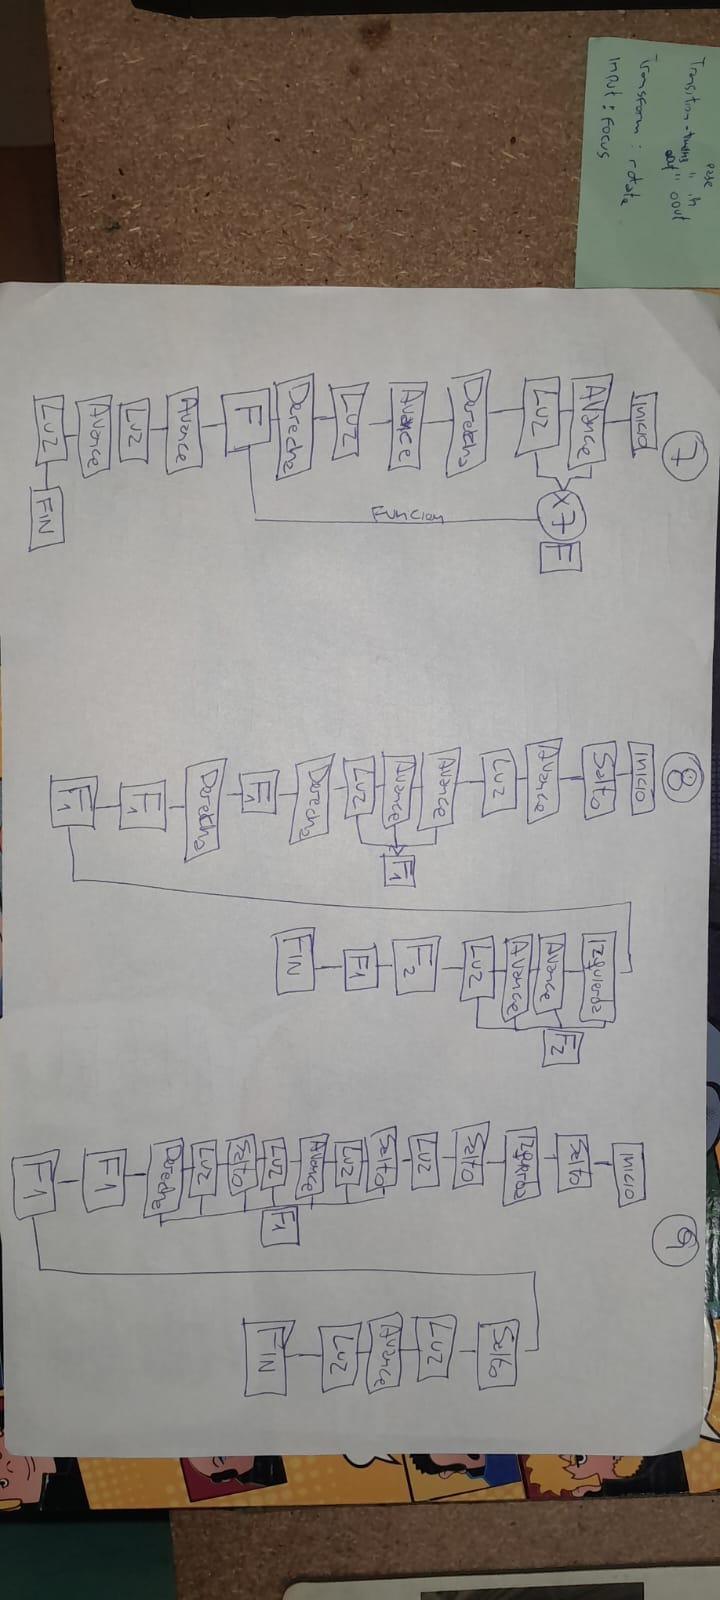 Transition-timing
ease in
out" oout
Transform: rotate
INPUT: Focus
7
Inicio
AVance
LUZ
x7
F
Funcion
Derecha
AVance
LUZ
Derecha
F
AVance
LUZ
AVance
LUZ
FIN
8
INICIO
Salto
AVance
LUZ
AVance
AVance
LUZ
F1
Derecha
F1
Derecha
F1
F1
Izquierda
AVance
AVance
LUZ
F2
F2
F1
FIN
9
INICIO
Salto
Salto
LUZ
Salto
LUZ
AVance
LUZ
Salto
LUZ
Derecha
F1
F1
F1
Salto
LUZ
AVance
LUZ
FIN